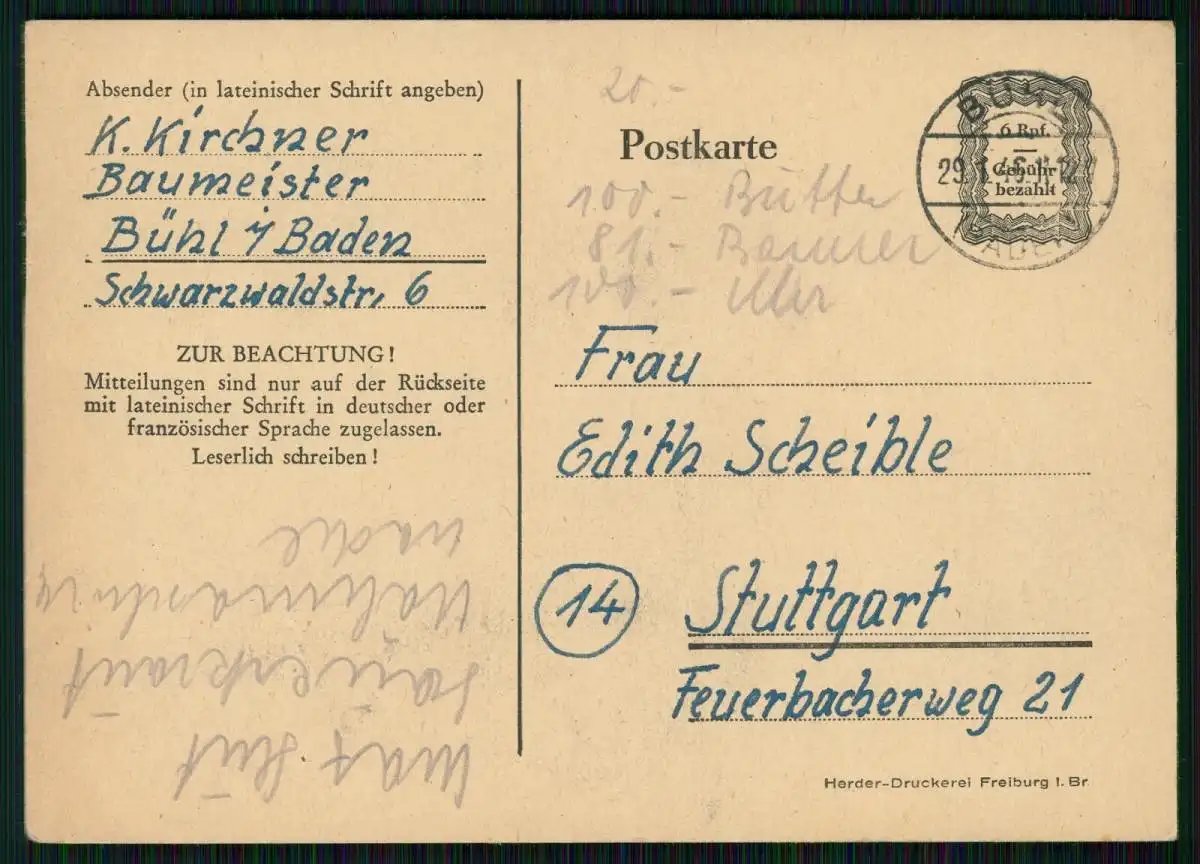 Absender (in lateinischer Schrift angeben)
K. Kirchner
Baumeister
Bühl i/ Baden
Schwarzwaldstr. 6
ZUR BEACHTUNG!
Mitteilungen sind nur auf der Rückseite
mit lateinischer Schrift in deutscher oder
französischer Sprache zugelassen.
Leserlich schreiben!
Hut
Sauerkraut
Nähmaschine
20.-
Postkarte
100.- Butter
81.-
100.- Uhr
BÜHL
6 Rpf.
Gebühr
bezahlt
29.1.46
(BADEN)
Frau
Edith Scheible
14
Stuttgart
Feuerbacherweg 21
Herder-Druckerei Freiburg I. Br.